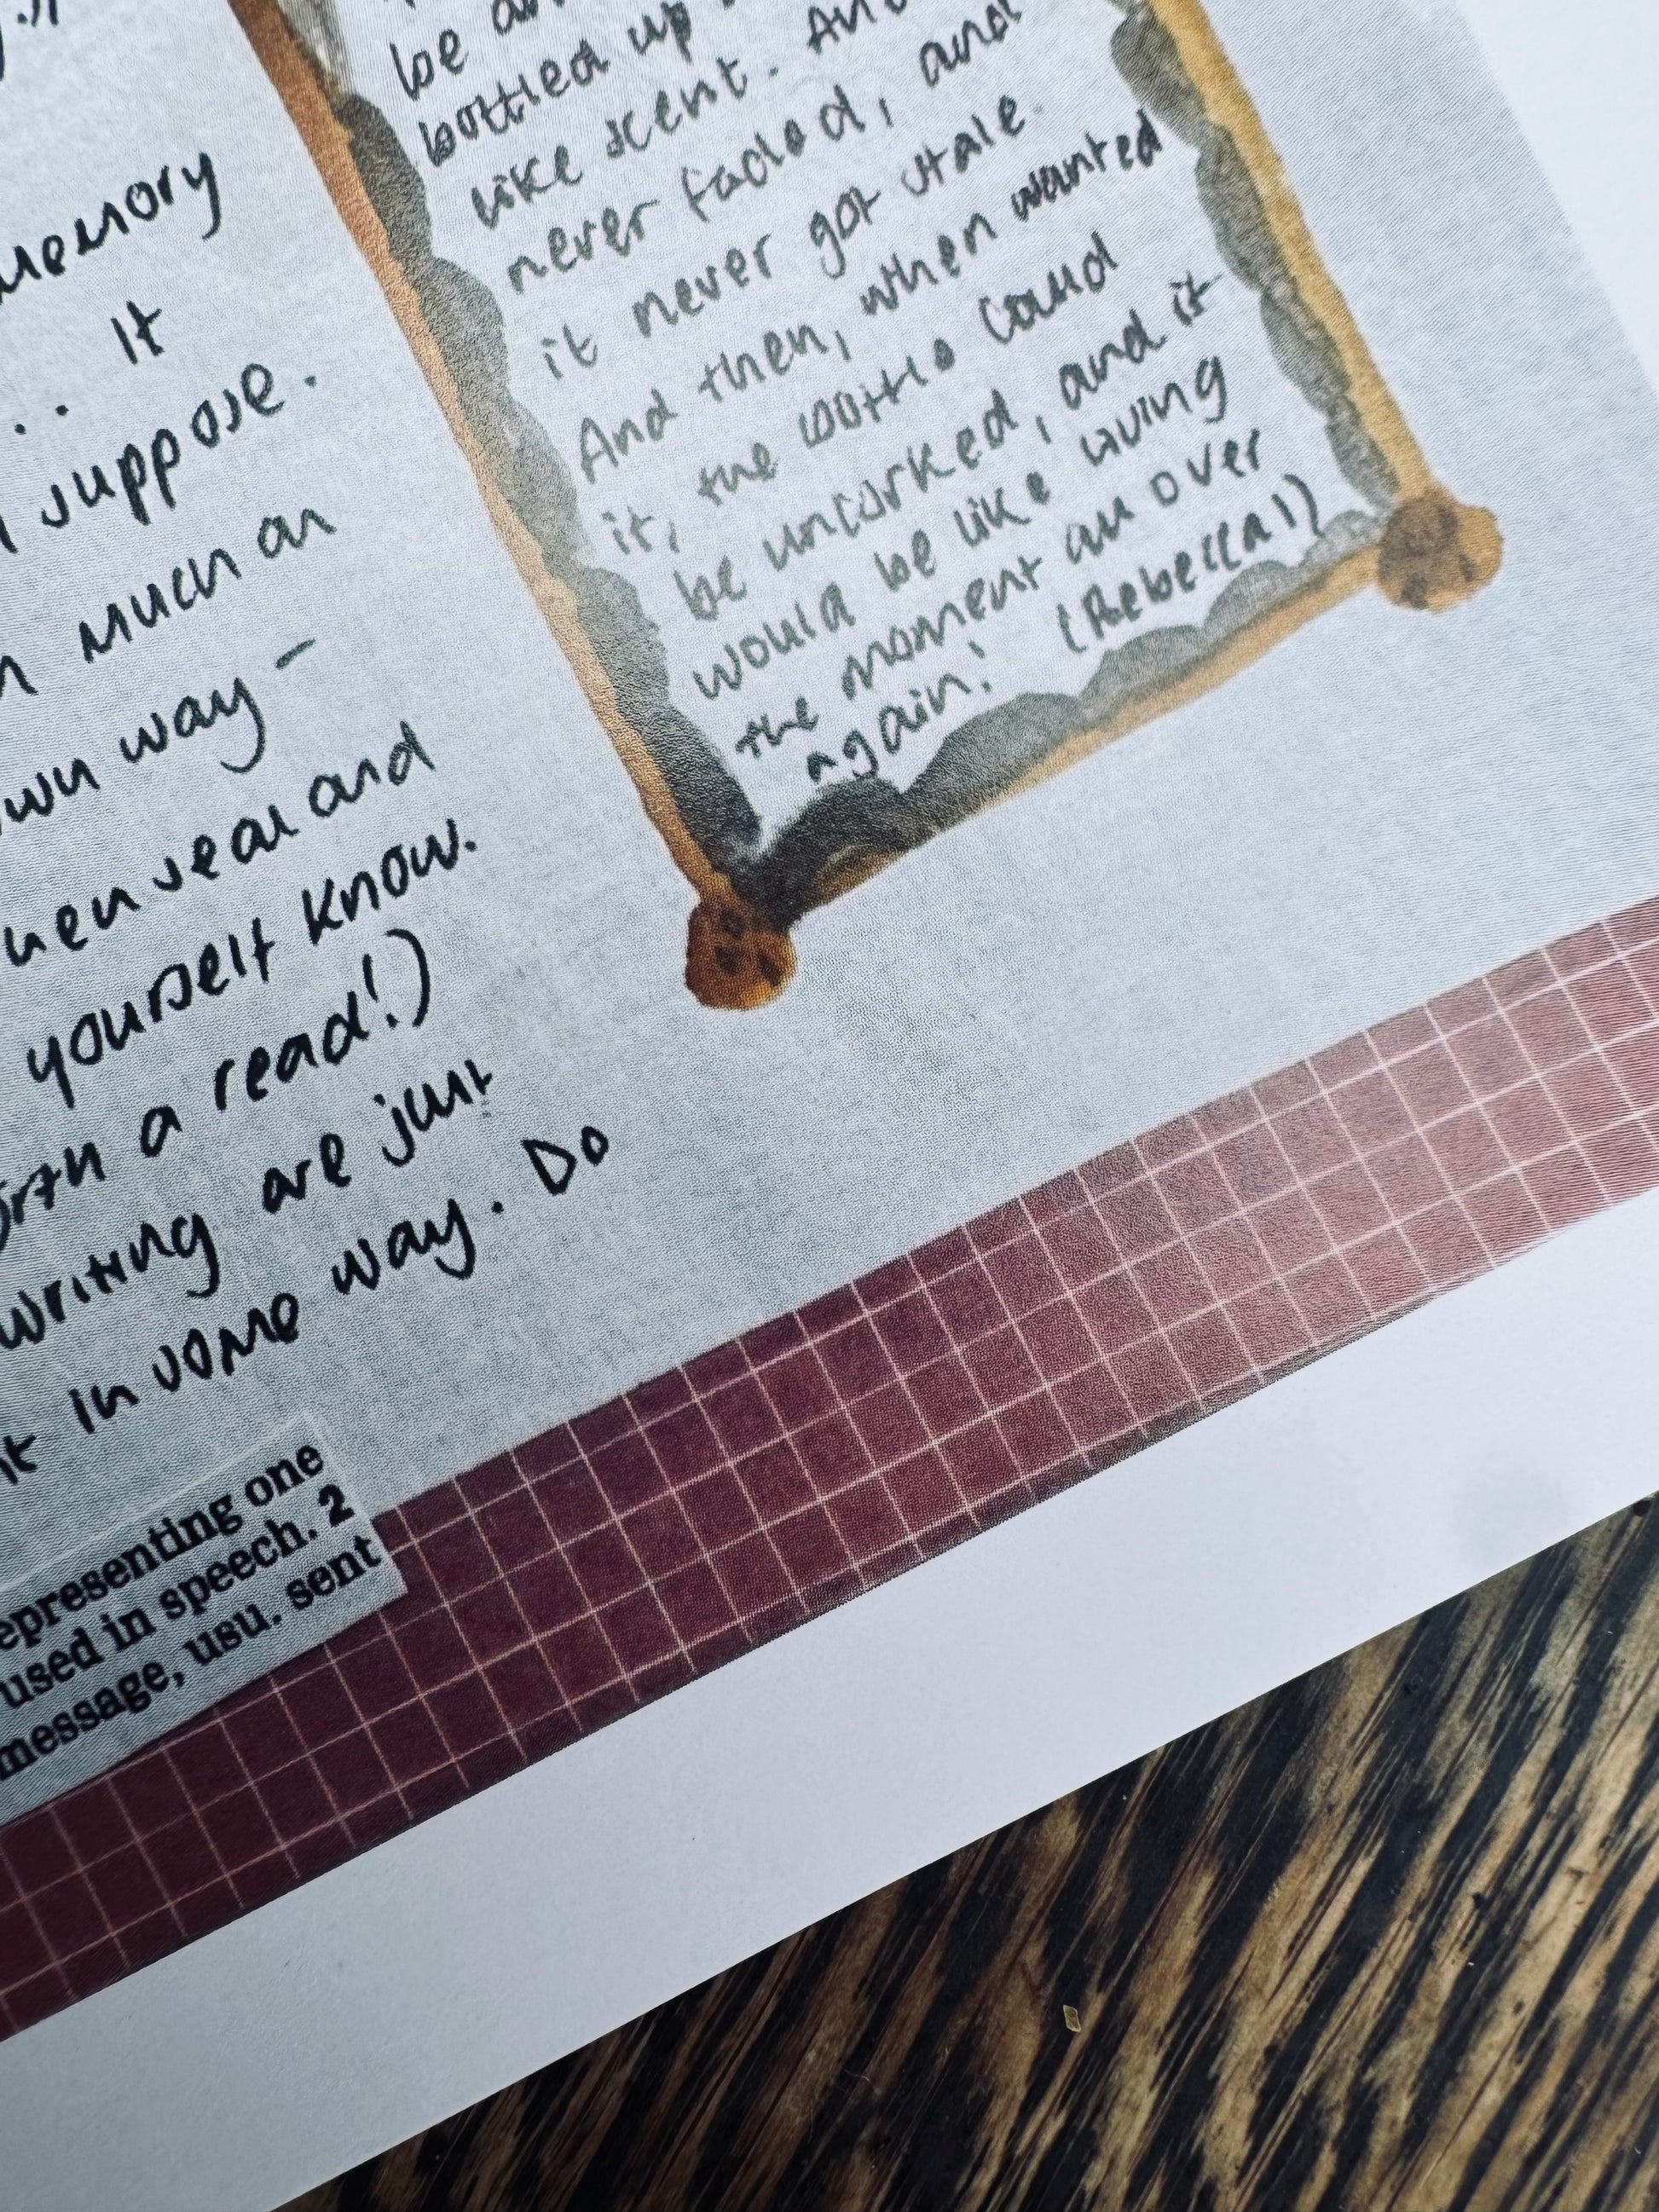 memory
. . . It
suppose.
much an
way –
and
yourself know.
a read!)
writing are just
in some way. Do
be an
bottled up
like scent. And
never faded, and
it never got stale.
And then, when wanted
it, the bottle could
be uncorked, and it
would be like living
the moment all over
again! (Rebecca!)
representing one
used in speech. 2
message, usu. sent